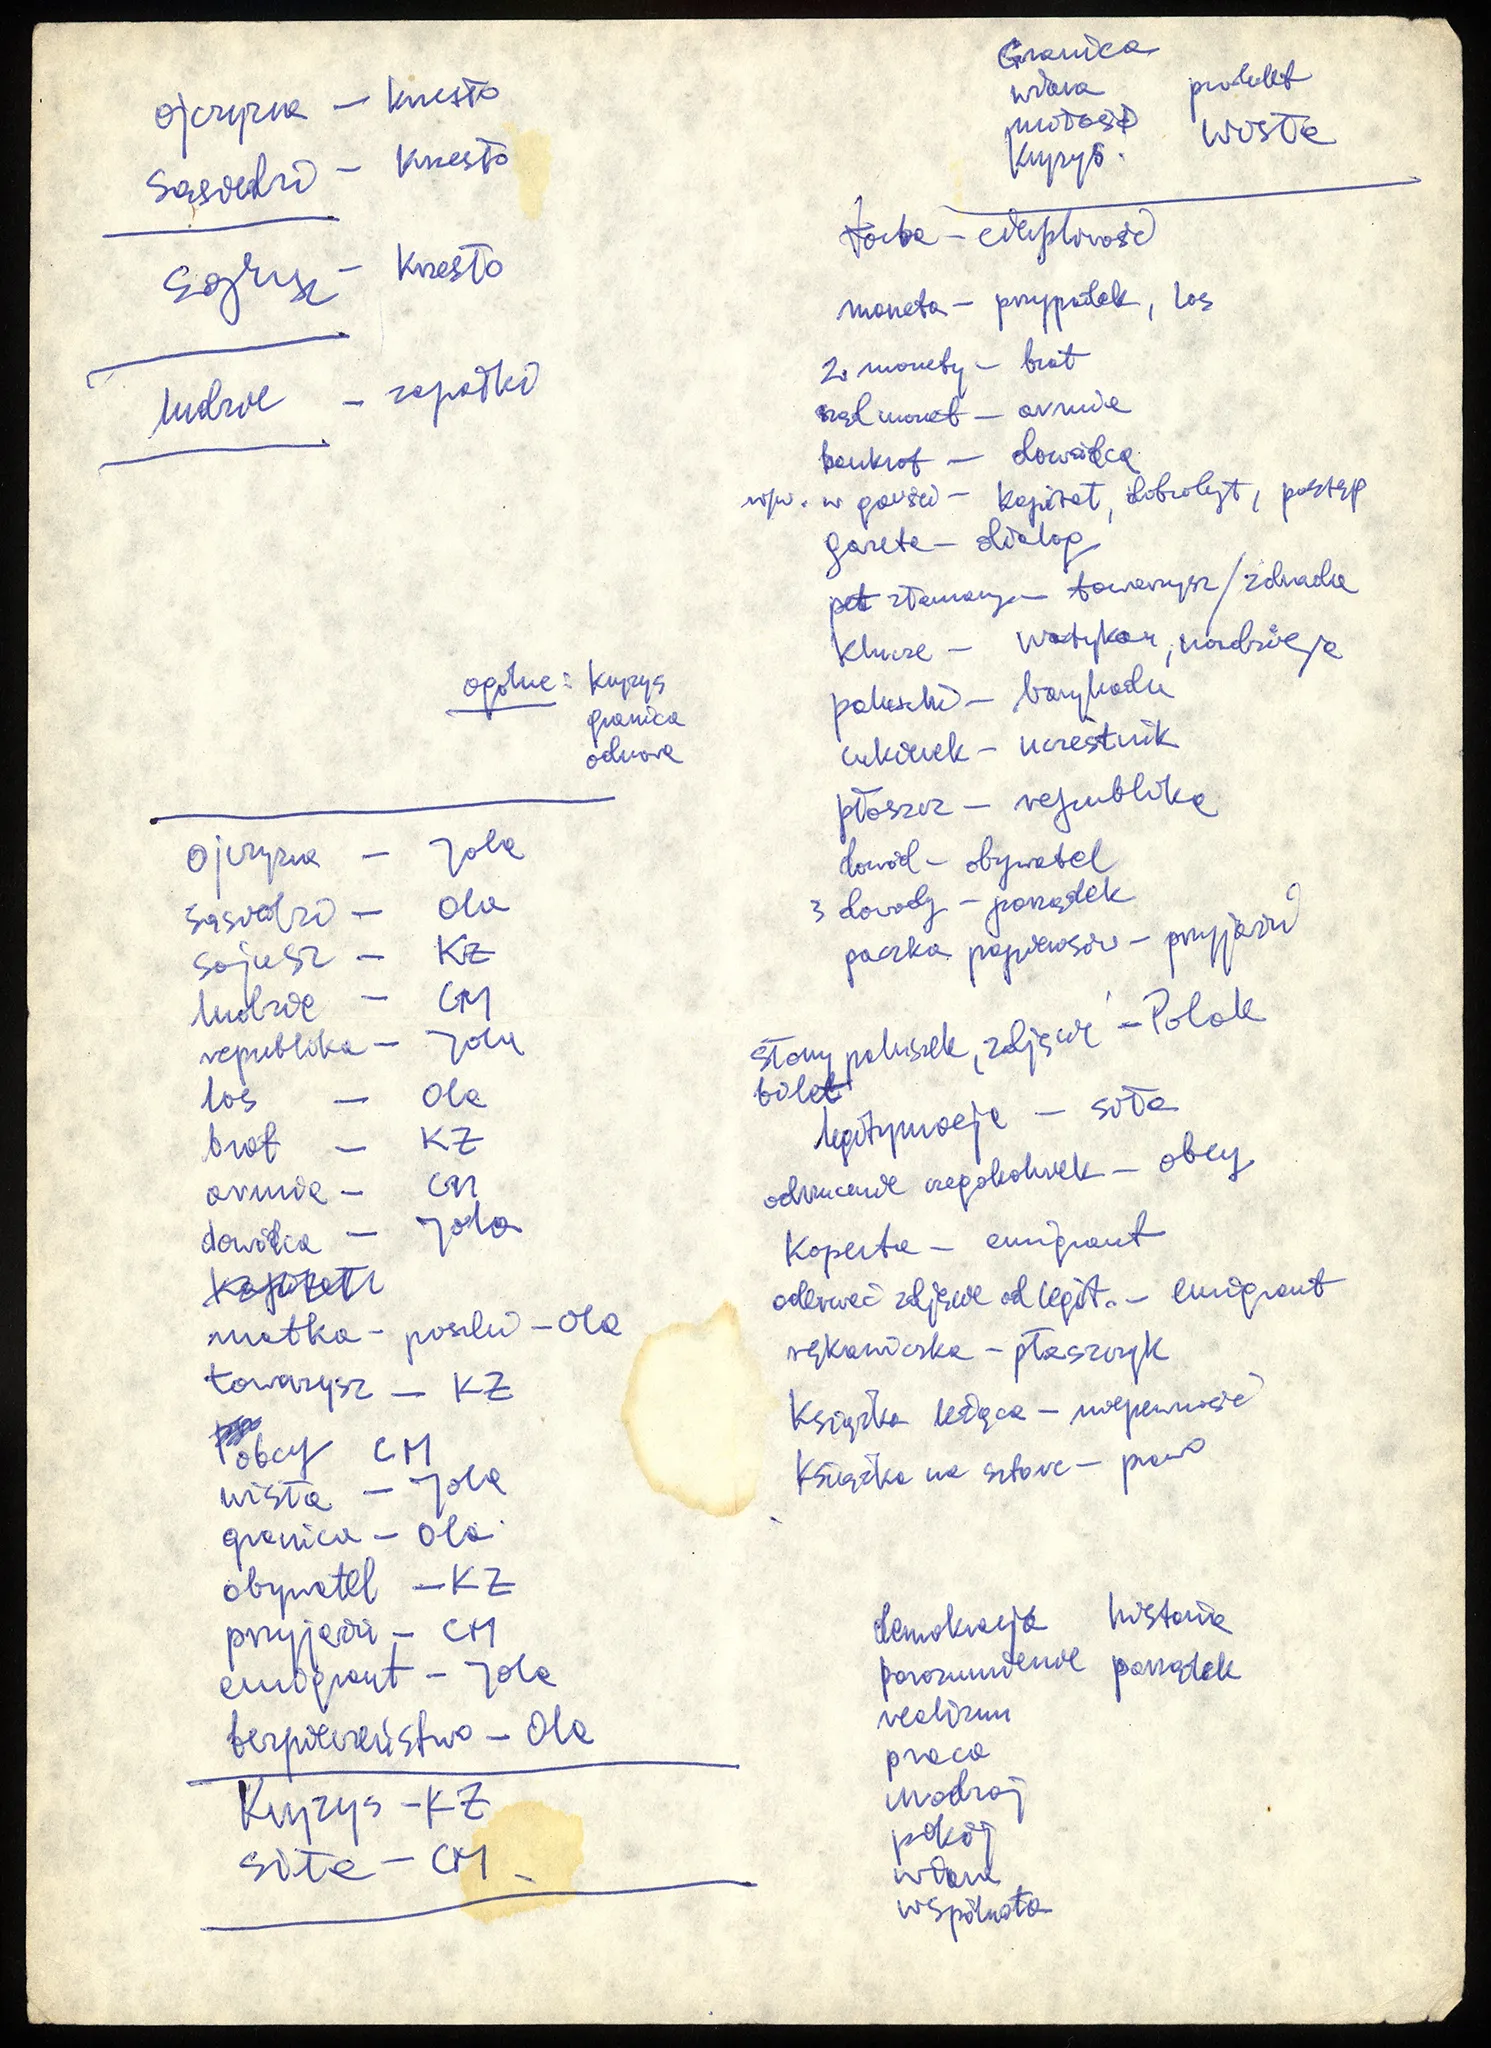 ojczyzna — krzesło
sąsiedzi — krzesło
sojusz — krzesło
ludzie — zapałki
ogólne: kryzys
granica
odnowa
ojczyzna — Jola
sąsiedzi — Ola
sojusz — KZ
ludzie — CM
republika — Jola
los — Ola
brat — KZ
armia — CM
dowódca — Jola
matka — Ola
towarzysz — KZ
obcy CM
wisła — Jola
granica — Ola
obywatel — KZ
przyjaźń — CM
emigrant — Jola
bezpieczeństwo — Ola
Kryzys — KZ
siła — CM
Granica
władza produkt
miłość Wisła
Kryzys.
torba — cierpliwość
moneta — przypadek, los
2 monety — brat
rząd monet — armia
banknot — dowódca
w garści — kapitał, dobrobyt, postęp
gazeta — dialog
pet złamany — towarzysz / zdrada
klucze — Watykan, nadzieja
paluszki — barykada
cukierek — uczestnik
płaszcz — republika
dowód — obywatel
3 dowody — porządek
paczka papierosów — przyjaźń
słony paluszek, zdjęcie — Polak
bilet
legitymacje — siła
odrzucenie czegokolwiek — obcy
Koperta — emigrant
oderwać zdjęcie od legit. — emigrant
rękawiczka — płaszczyk
Książka leżąca — niepewność
Książka na sztorc — prawo
demokracja historia
porozumienie porządek
realizm
praca
nadzieja
pokój
władza
wspólnota